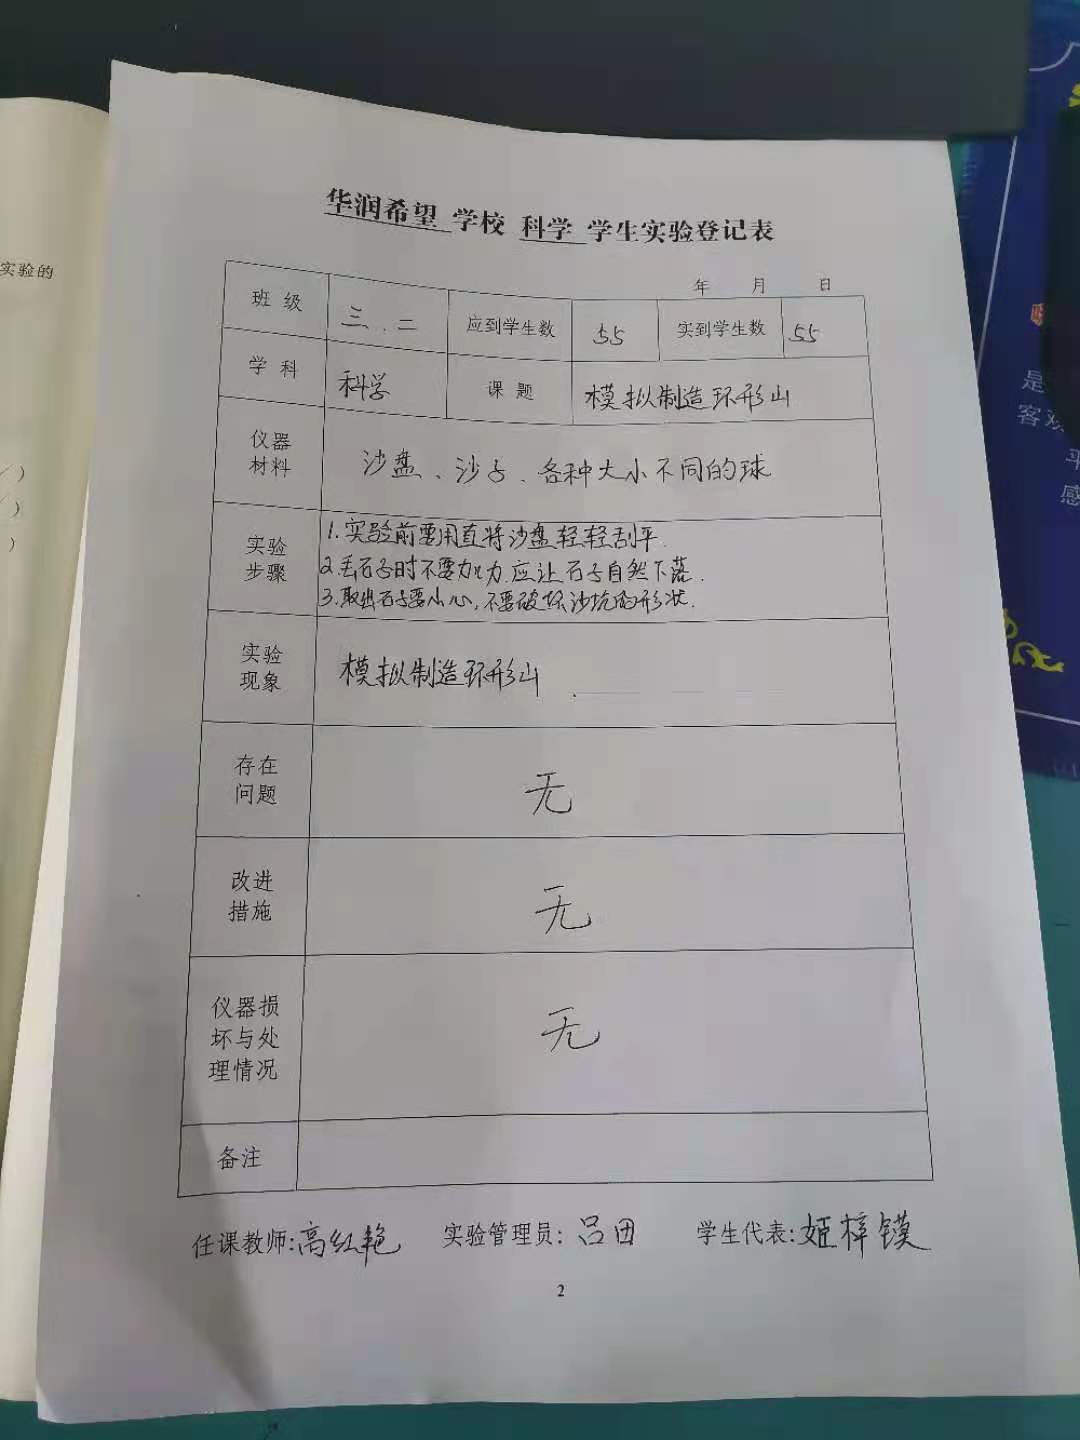 华润希望 学校 科学 学生实验登记表
实验的
年 月 日
班 级 三.二 应到学生数 55 实到学生数 55
学 科 科学 课 题 模拟制造环形山
仪器
材料
沙盘、沙子、各种大小不同的球
实验
步骤
1.实验前要用直将沙盘轻轻刮平.
2.丢石子时不要加力.应让石子自然下落.
3.取出石子要小心,不要破坏沙坑的形状.
实验
现象
模拟制造环形山
存在
问题
无
改进
措施
无
仪器损
坏与处
理情况
无
备注
任课教师:高红艳 实验管理员:吕田 学生代表:姬梓镆
2
是
客观
平
感